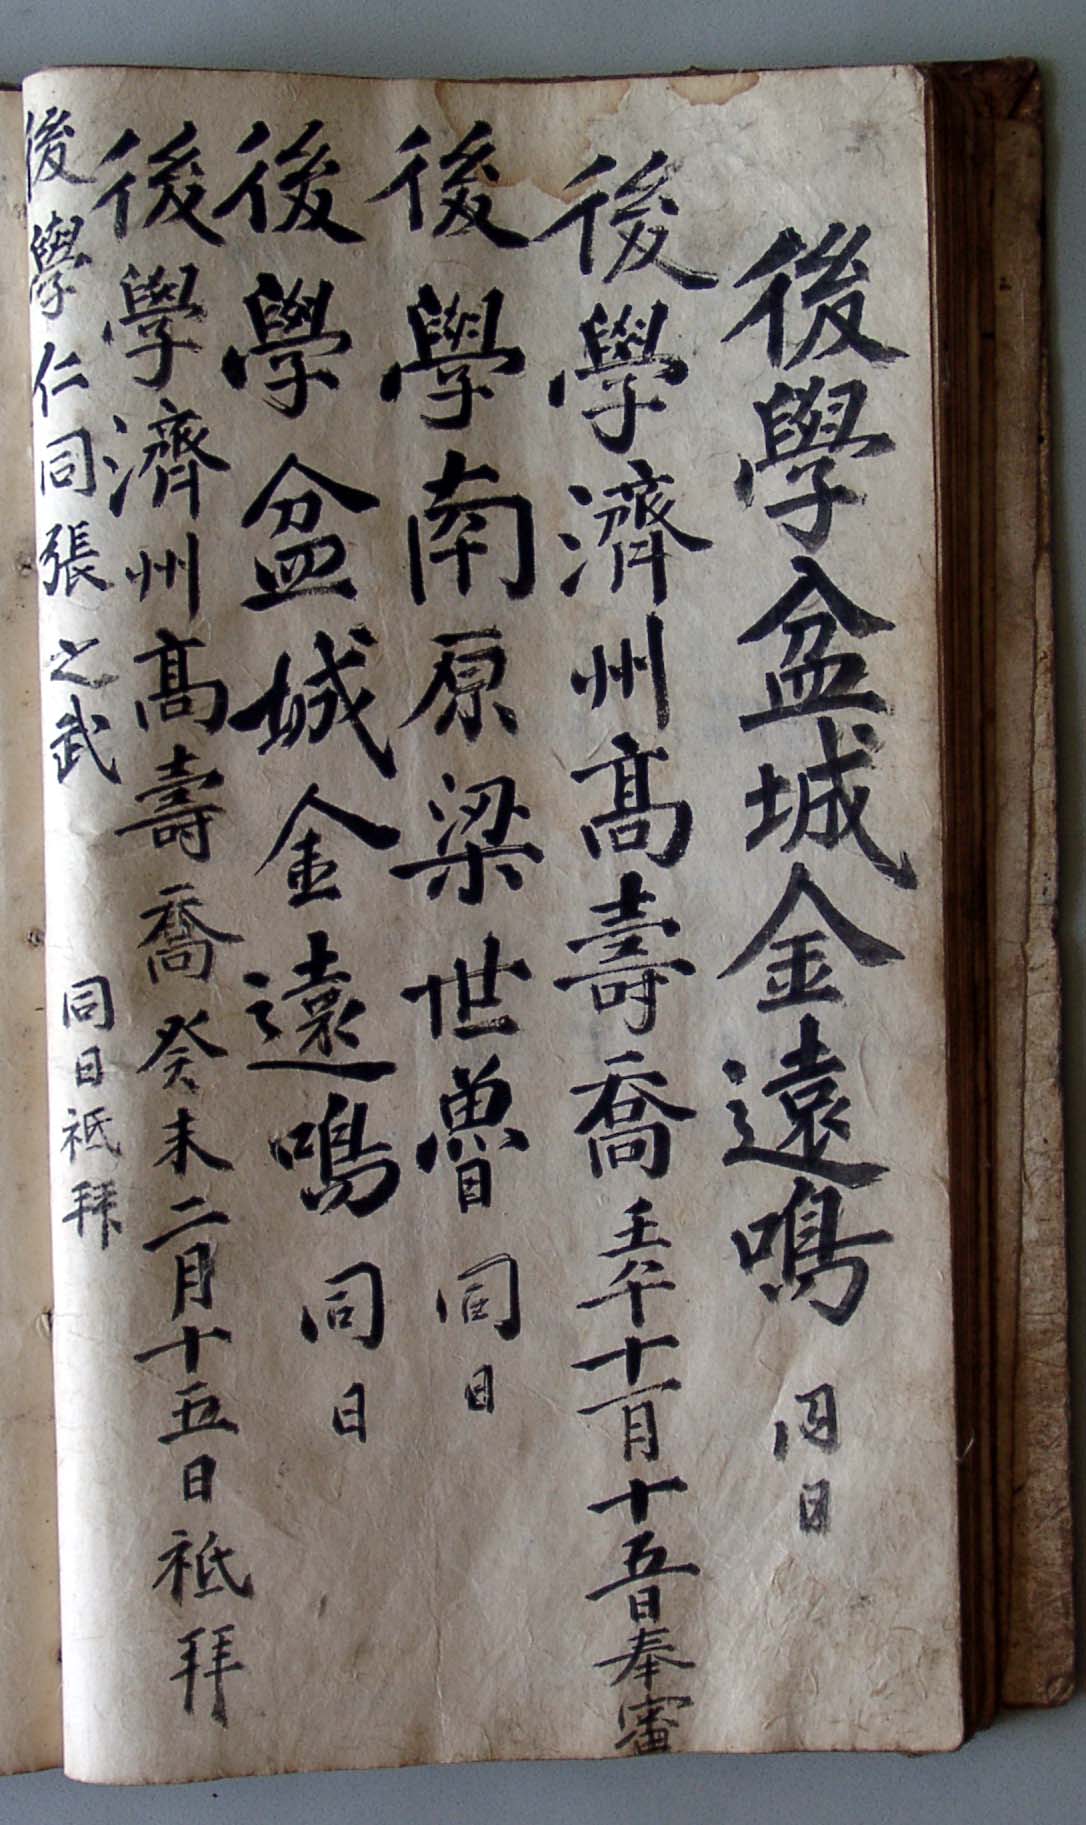 後學盆城金遠鳴 同日
後學濟州髙壽喬壬午十一月十五日奉審
後學南原梁世魯 同日
後學盆城金遠鳴 同日
後學濟州髙壽喬癸未二月十五日祗拜
後學仁同張之武 同日祗拜